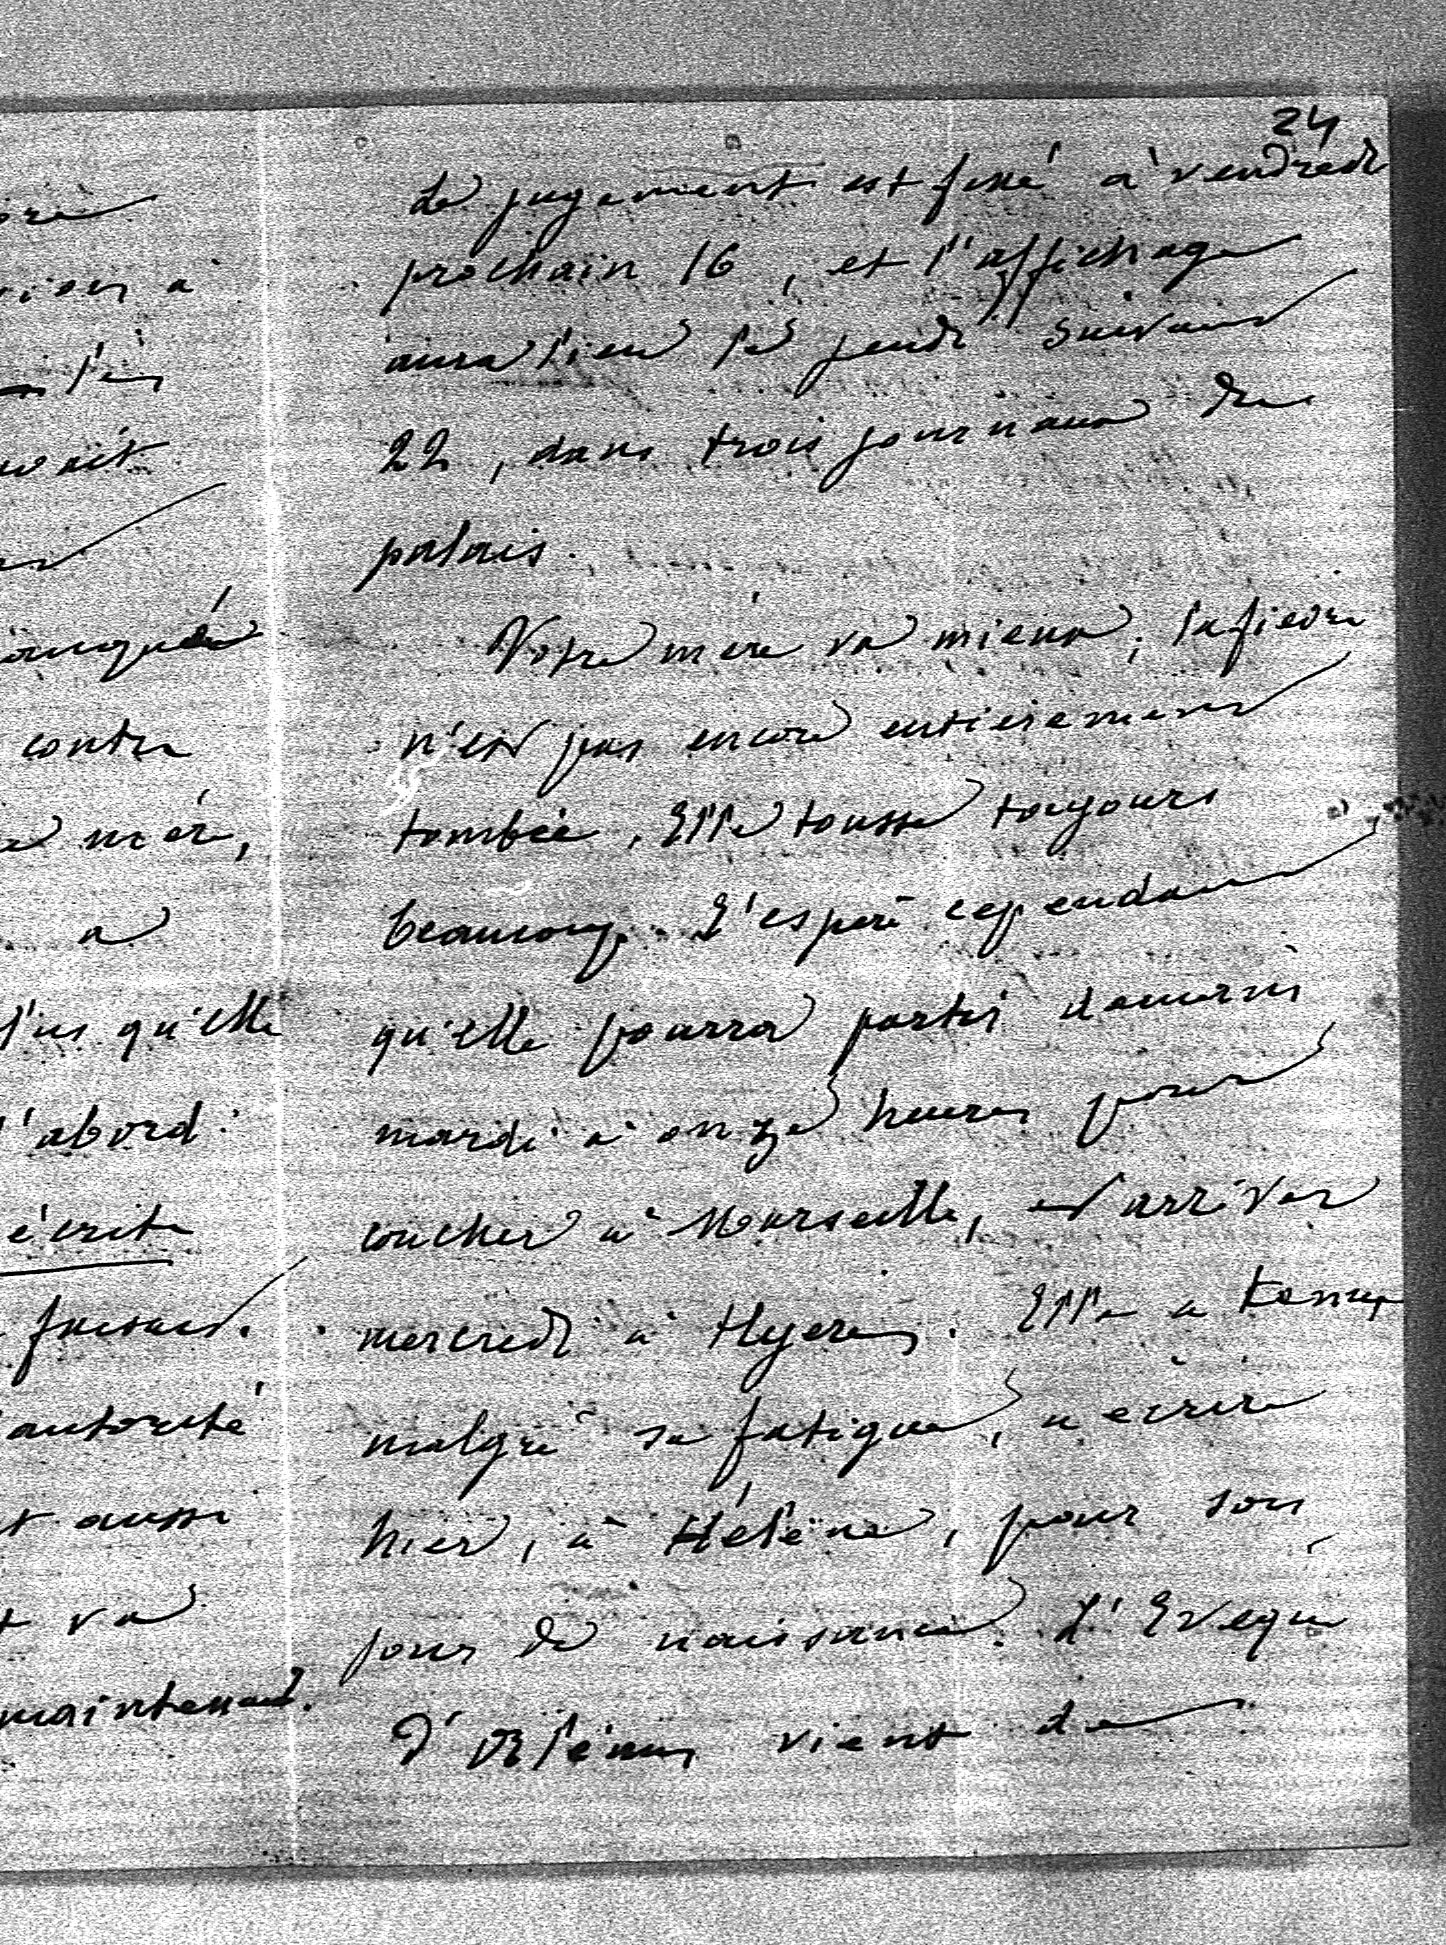 24
Le jugement est fixé à vendredi
prochain 16, et l'affichage
aura lieu le jeudi suivant
22, dans trois journaux du
palais.
Votre mère va mieux; la fievre
n'est pas encore entierement
tombée. Elle tousse toujours
beaucoup. J'espere cependant
qu'elle pourra partir demain
mardi à onze heures pour
coucher à Marseille, et arriver
mercredi à Hyeres. Elle a tenu,
malgré sa fatigue, a ecrire
hier, à Hélène, pour son
jour de naissance. L'Eveque
d'Orléans vient de
contre
mère,
a
qu'elle
d'abord
écrite
autorité
aussi
va
maintenant.